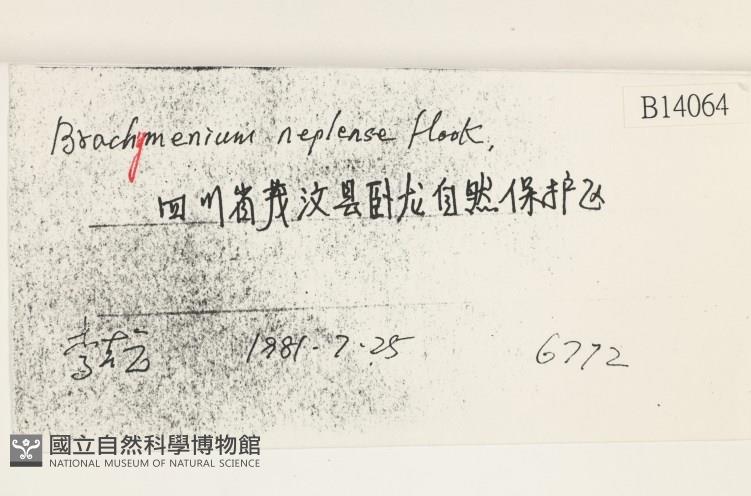 B14064
Brachymenium neplense Hook.
四川省茂汶县卧龙自然保护区
1981-7-25
6772
國立自然科學博物館
NATIONAL MUSEUM OF NATURAL SCIENCE